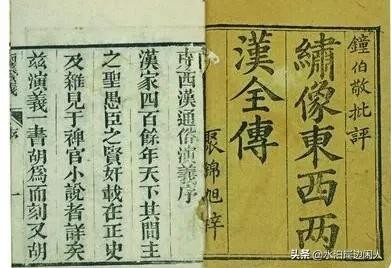 鐘伯敬批評
繡像東西两
漢全傳
東西漢通俗演義序
漢家四百餘年天下其間主
之聖愚臣之賢奸載在正史
及雜見于稗官小說者詳矣
兹演義一書胡為而刻又胡
头条 @水泊崖边闲人